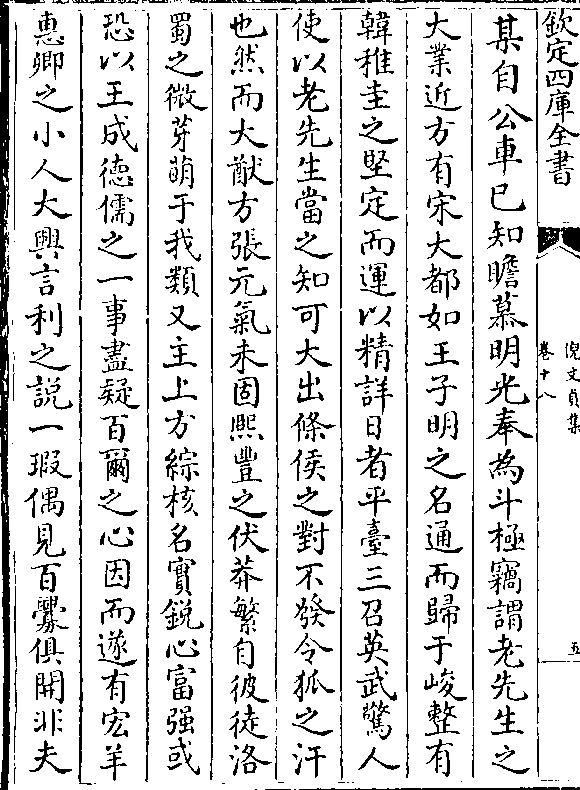 欽定四庫全書
倪文貞集
卷十八
五
某自公車已知瞻慕明光奉為斗極竊謂老先生之
大業近方有宋大都如王子明之名通而歸于峻整有
韓稚圭之堅定而運以精詳日者平臺三召英武驚人
使以老先生當之知可大出條侯之對不發令狐之汗
也然而大猷方張元氣未固熙豐之伏莽繁自彼徒洛
蜀之微芽萌于我類又主上方綜核名實銳心富强或
恐以王成德儒之一事盡疑百爾之心因而遂有宏羊
惠卿之小人大興言利之説一瑕偶見百釁俱開非夫